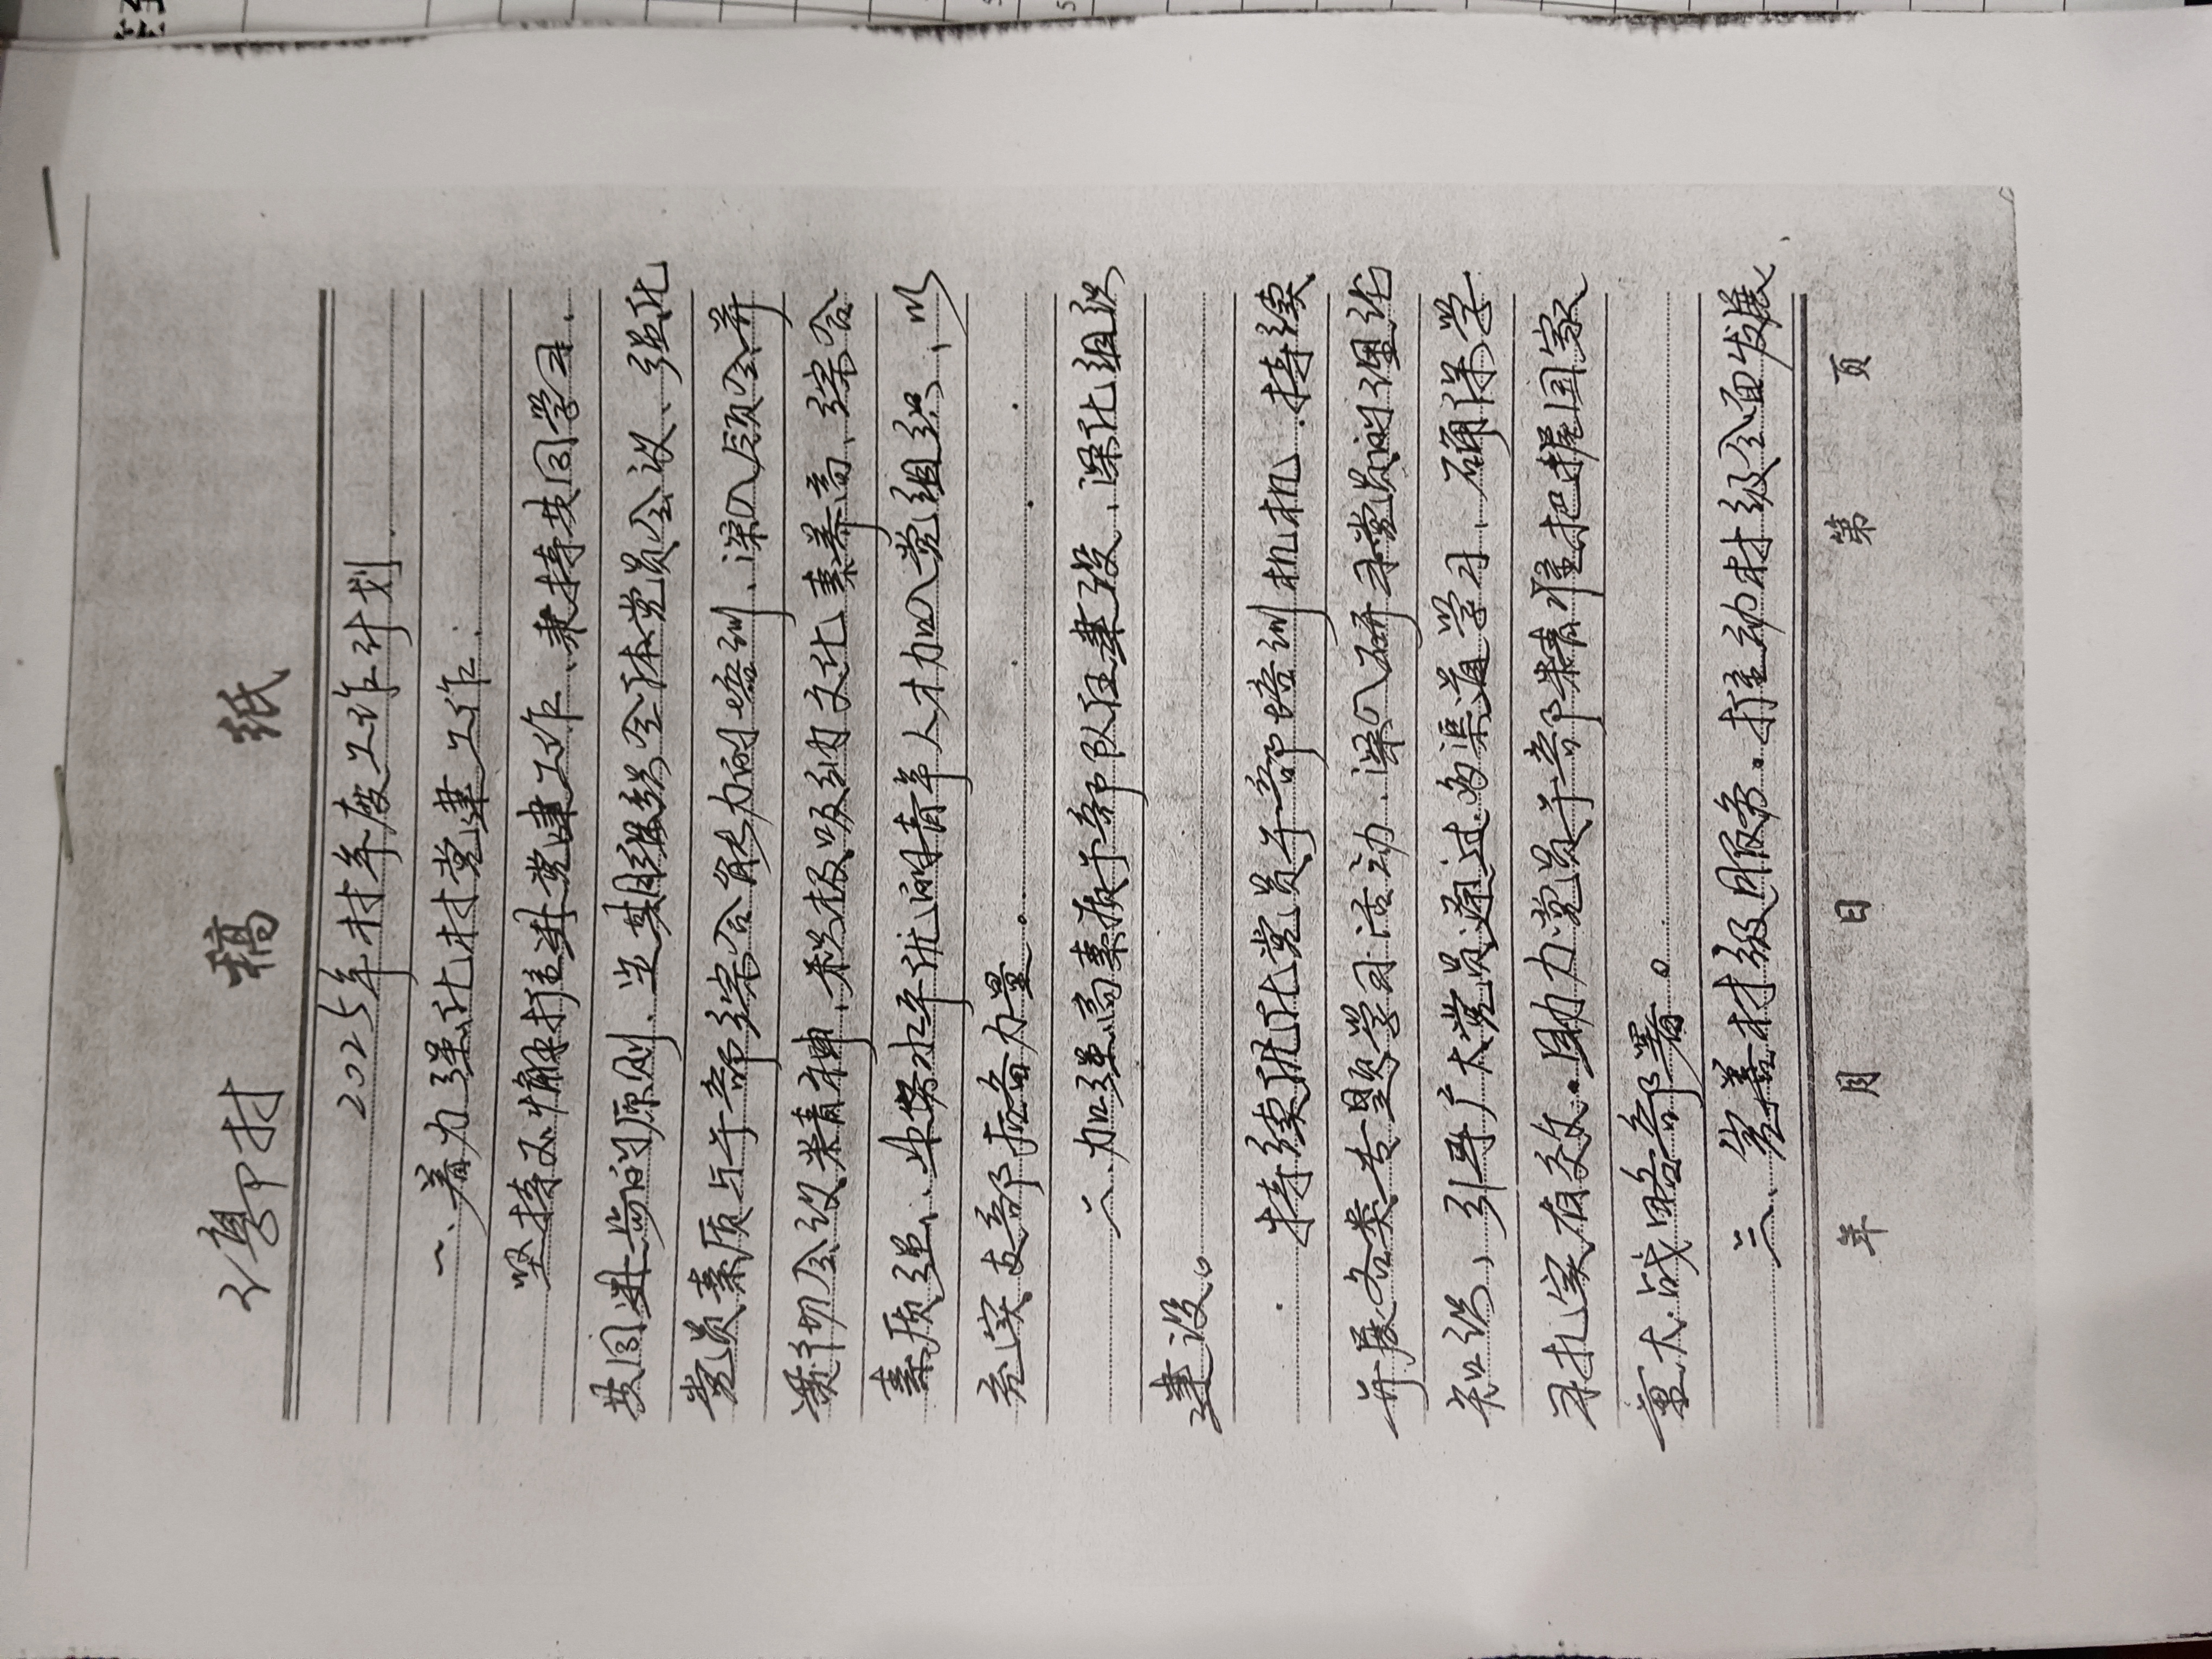 稿 纸
2025年村年度工作计划
一、着力强化村党建工作
坚持不懈推进党建工作、秉持共同学习、
共同进步的原则、定期组织全体党员会议、强化
党员素质与干部综合能力的培训、深入领会并
践行会议精神、积极吸纳文化素养高、综合
素质强、业务水平优的青年人才加入党组织、以
充实支部后备力量。
二、加强高素质干部队伍建设、深化组织
建设。
持续优化党员干部培训机机、持续
开展各类专题学习活动、深入研习党员的理论
知识、引导广大党员通过多渠道学习、确保学
习扎实有效。助力党员干部精准把握国家
重大战略部署。
三、完善村级服务。推动村级全面发展、
年 月 日 第 页